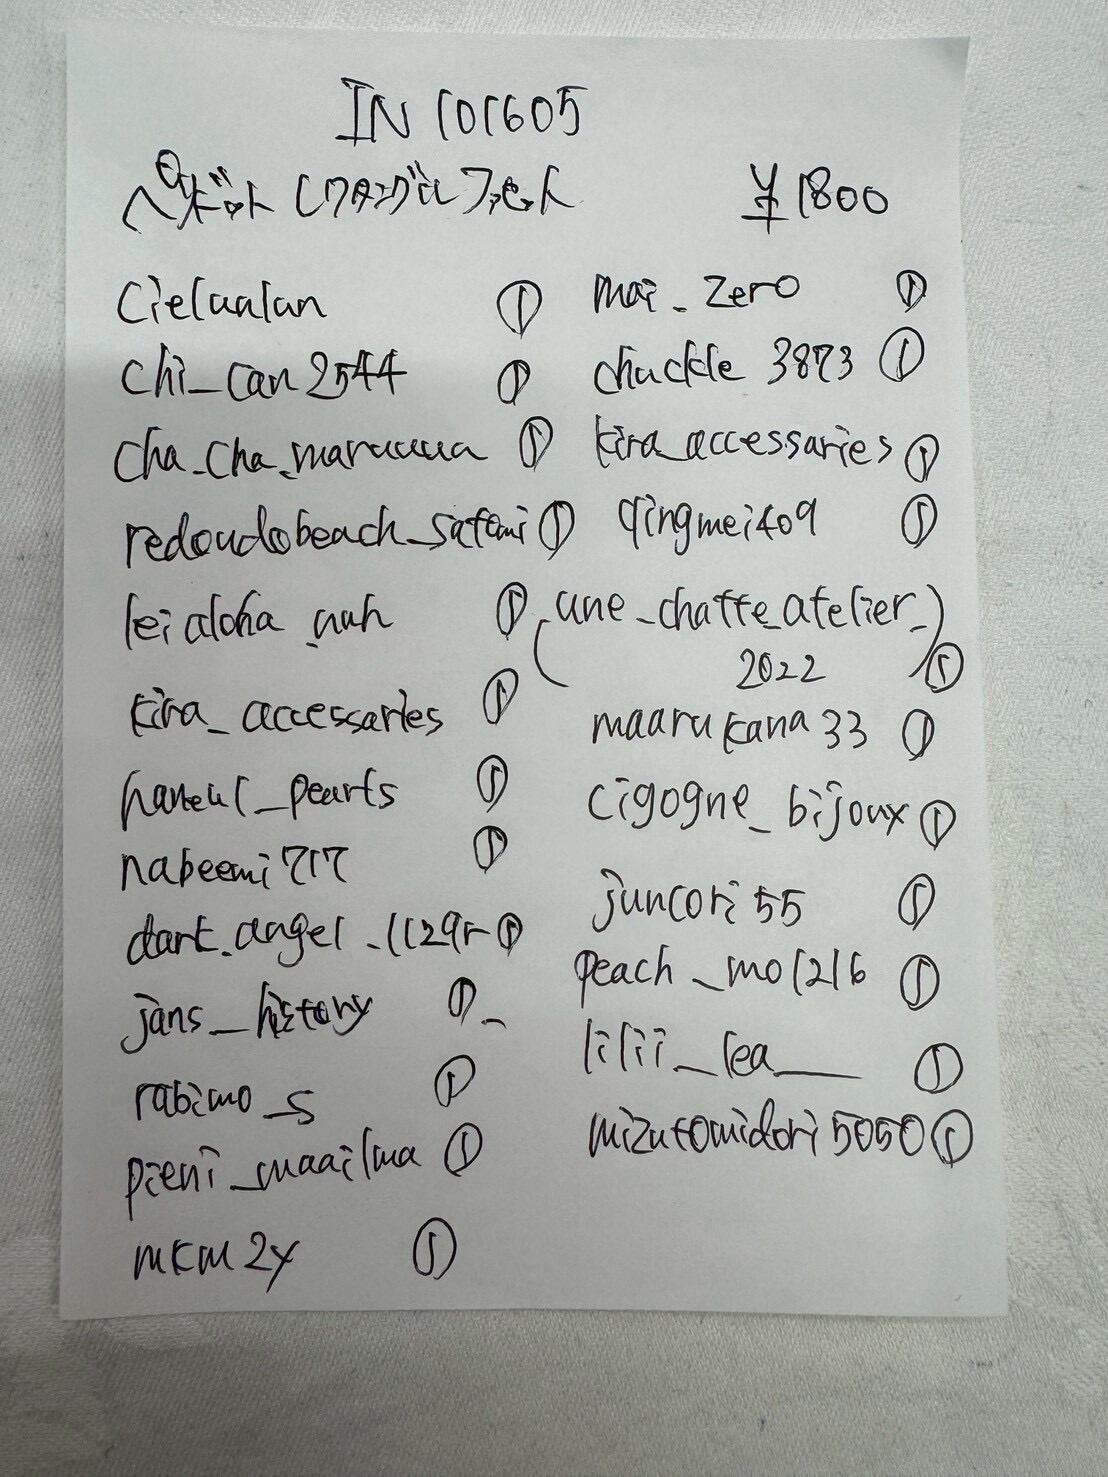 IN 101605
ペリドット レクタングル ファセット ¥1800
Cielualun ①
chi_can2544 ①
cha_cha_maruuuua ①
redondobeach_satomi ①
leialoha_nuh ①
kira_accessaries ①
haneul_pearts ①
nabeemi717 ①
dark_angel_1129r ①
jans_history ①
rabimo_s ①
pieni_maailma ①
mkm2y ①
mai_zero ①
chuckle3873 ①
kira_accessaries ①
qingmei409 ①
une_chatte_atelier_
2022 ①
maarukana33 ①
cigogne_bijoux ①
juncori55 ①
peach_mo1216 ①
lilii_lea__ ①
mizutomidori5050 ①